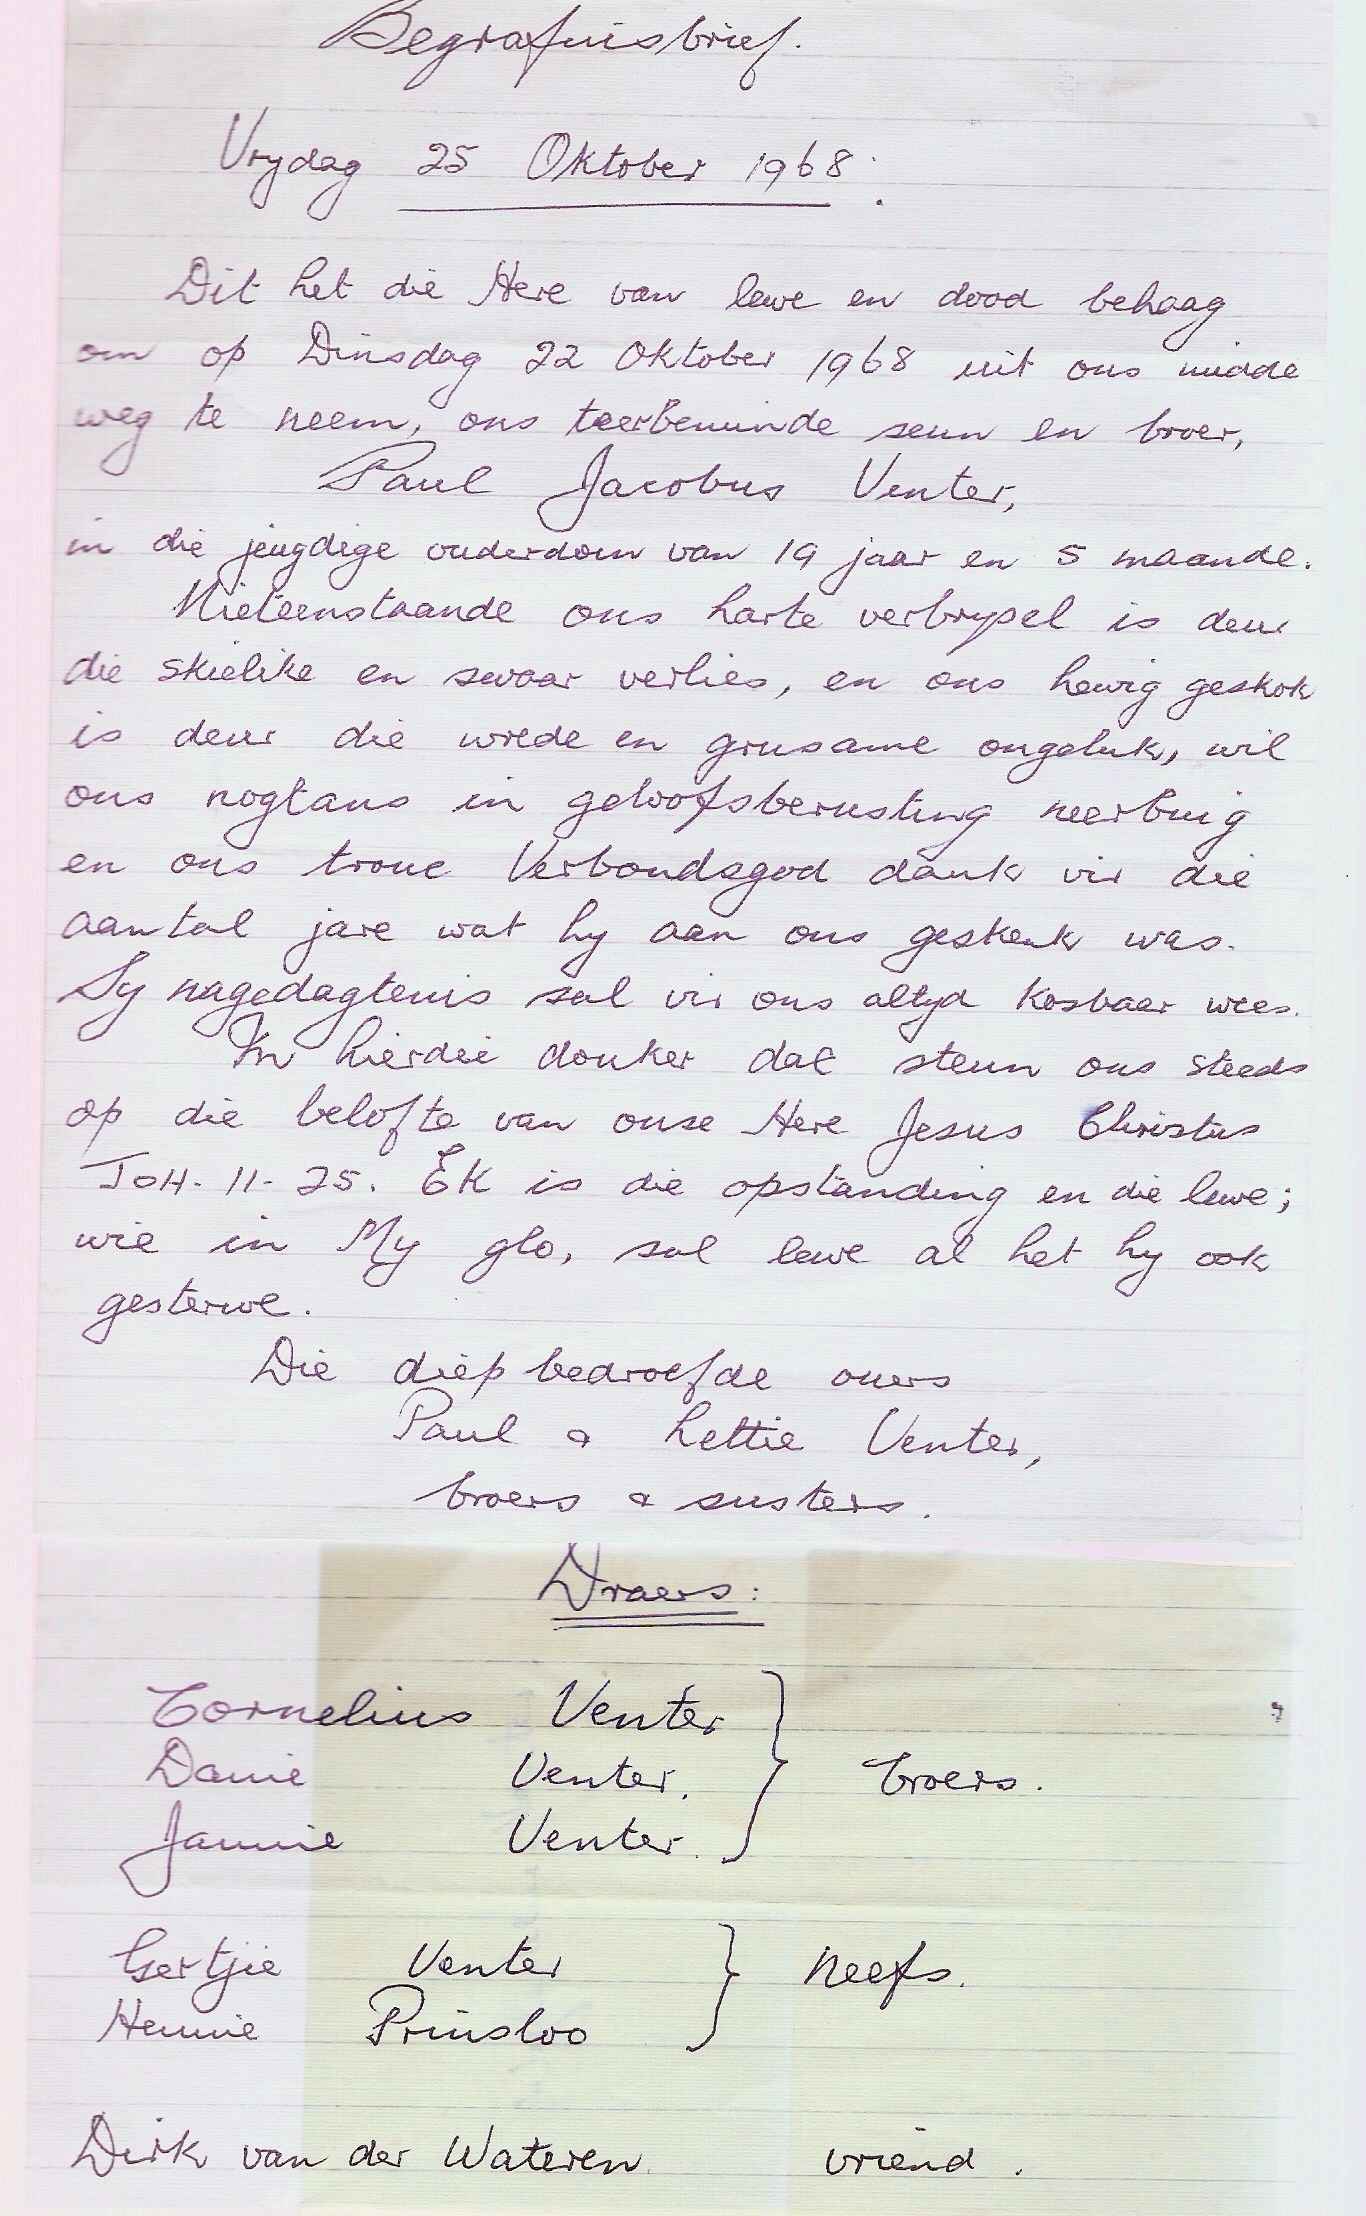 Begrafnisbrief.
Vrydag 25 Oktober 1968:
Dit het die Here van lewe en dood behaag
om op Dinsdag 22 Oktober 1968 uit ons midde
weg te neem, ons teerbeminde seun en broer,
Paul Jacobus Venter,
in die jeugdige ouderdom van 19 jaar en 5 maande.
Nieteenstaande ons harte verbrysel is deur
die skielike en swaar verlies, en ons hewig geskok
is deur die wrede en grusame ongeluk, wil
ons nogtans in geloofsberusting neerbuig
en ons troue Verbondsgod dank vir die
aantal jare wat hy aan ons geskenk was.
Sy nagedagtenis sal vir ons altyd kosbaar wees.
In hierdie donker dal steun ons steeds
op die belofte van onse Here Jesus Christus
JOH. 11-25. Ek is die opstanding en die lewe;
wie in My glo, sal lewe al het hy ook
gesterwe.
Die diep bedroefde ouers
Paul & Lettie Venter,
broers & susters.
Draers:
Cornelius Venter
Danie Venter. } broers.
Jannie Venter.
Gertjie Venter } Neefs.
Hennie Prinsloo
Dirk van der Wateren vriend.